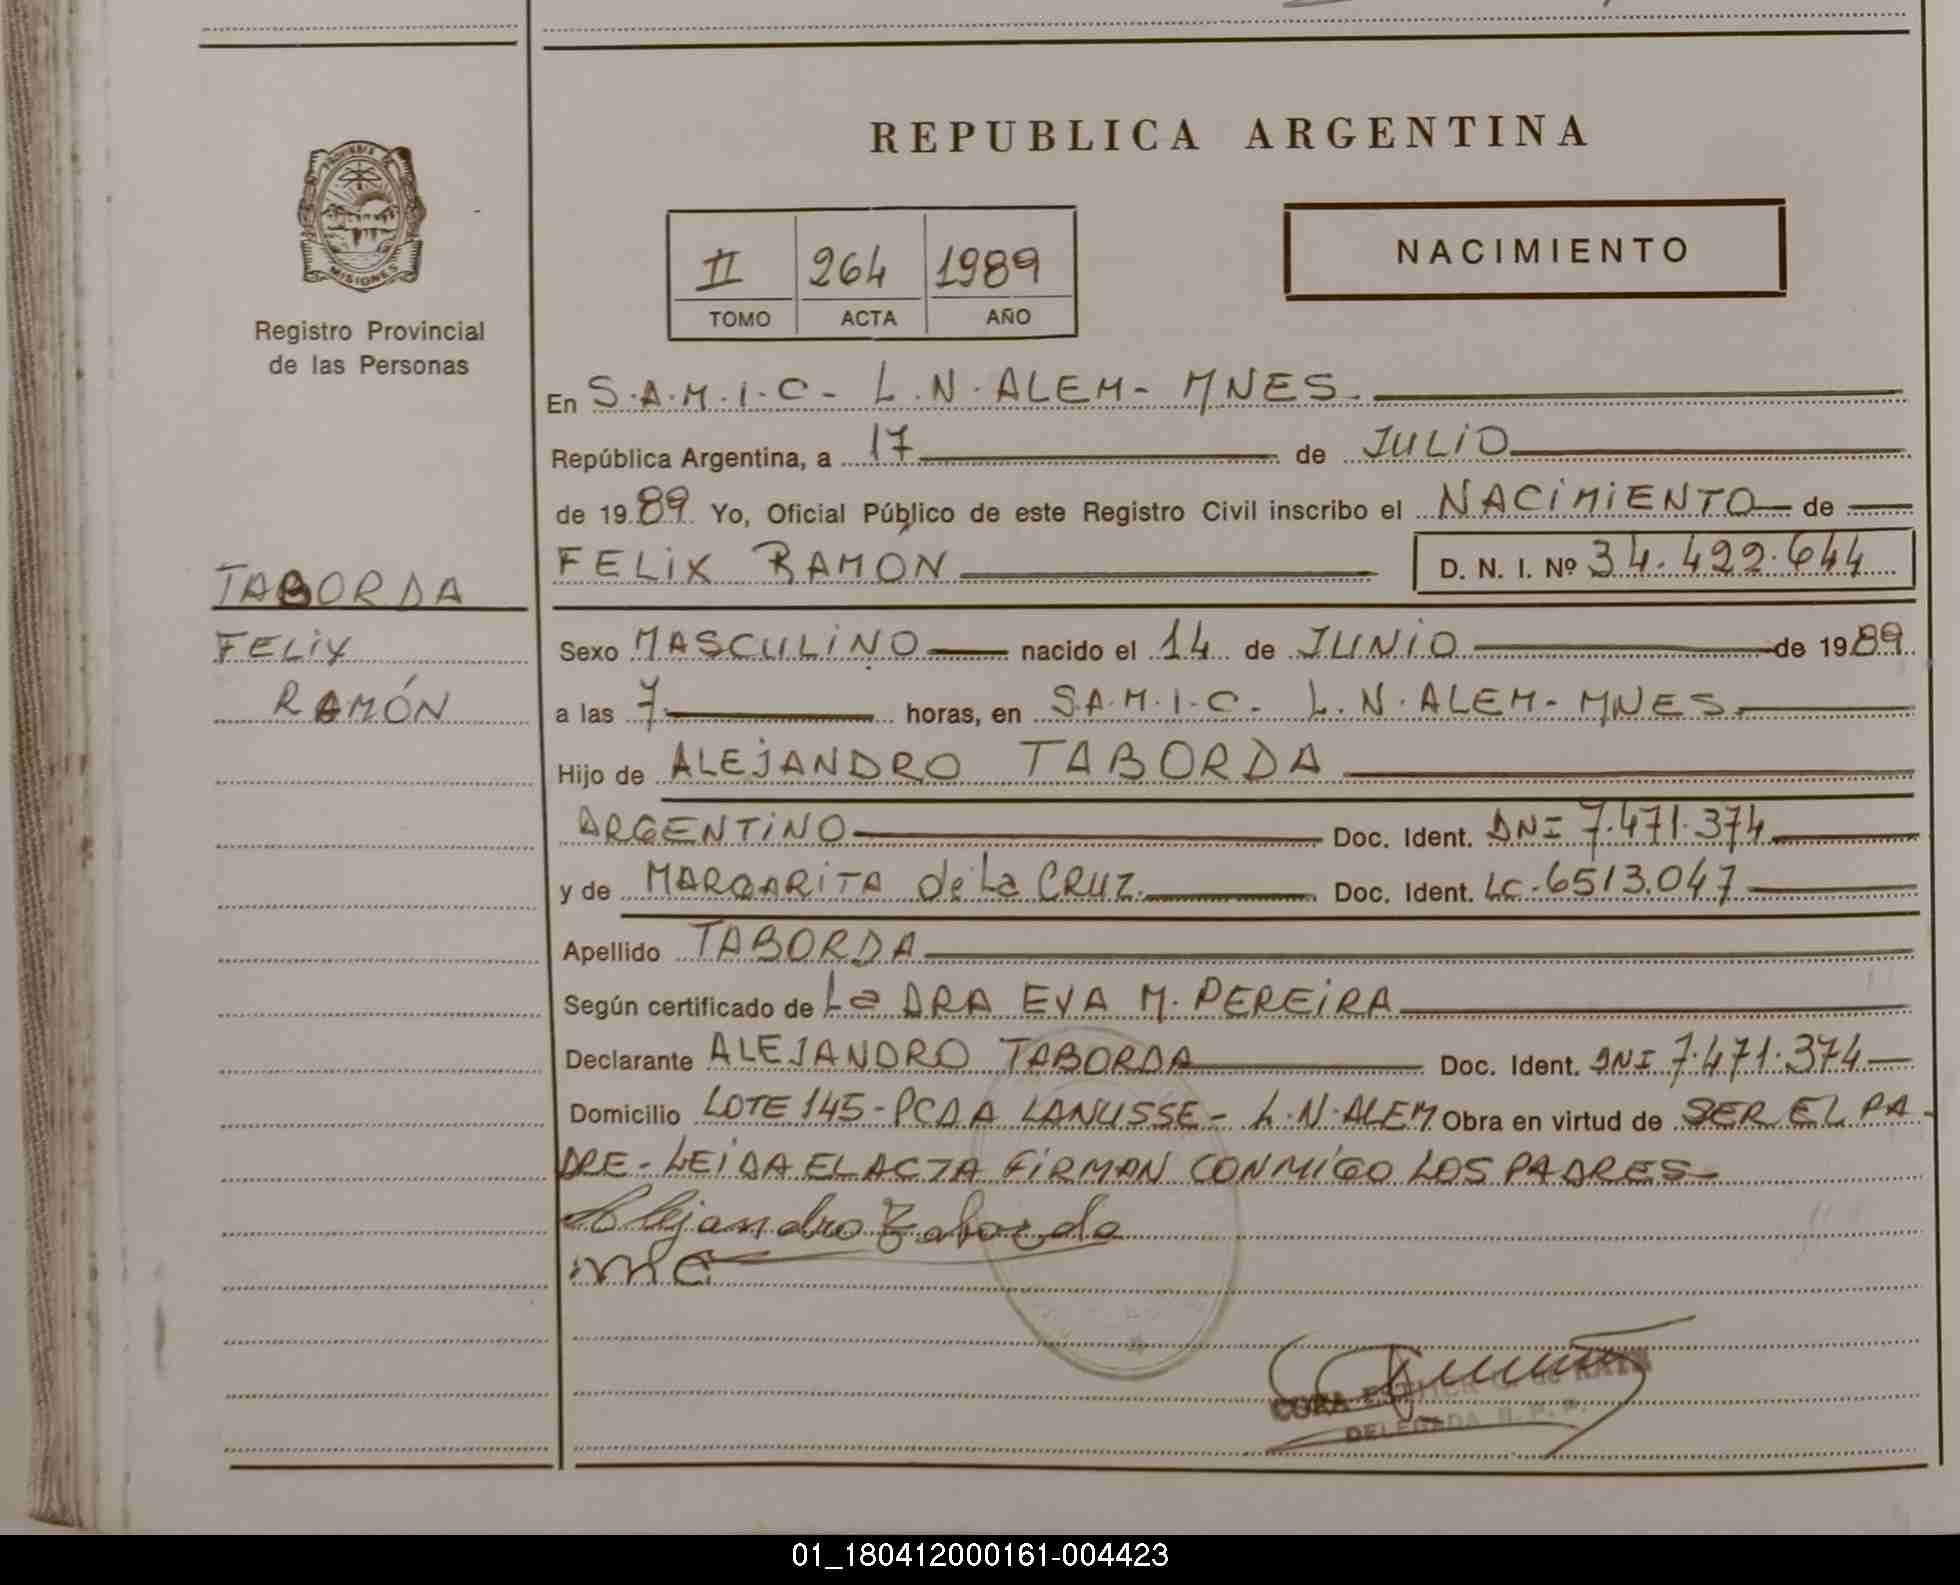 REPUBLICA ARGENTINA
PROVINCIA DE
MISIONES
Registro Provincial
de las Personas
II 264 1989
TOMO ACTA AÑO
NACIMIENTO
En S.A.M.I.C- L.N.ALEM- MNES.
República Argentina, a 17 de JULIO
de 1989 Yo, Oficial Público de este Registro Civil inscribo el NACIMIENTO de
FELIX RAMÓN D. N. I. Nº 34.422.644
TABORDA
FELIX
RAMÓN
Sexo MASCULINO nacido el 14 de JUNIO de 1989
a las 7 horas, en S.A.M.I-C- L.N.ALEM- MNES.
Hijo de ALEJANDRO TABORDA
ARGENTINO Doc. Ident. DNI 7.471.374
y de MARGARITA de La CRUZ. Doc. Ident. LC.6513.047
Apellido TABORDA
Según certificado de La DRA EVA M. PEREIRA
Declarante ALEJANDRO TABORDA Doc. Ident. DNI 7.471.374
Domicilio LOTE 145-PCDA LANUSSE- L.N.ALEM. Obra en virtud de SER EL PA-
DRE- LEIDA EL ACTA FIRMAN CONMIGO LOS PADRES-
Alejandro Taborda
mc
CORA ESTHER G. de
DELEGADA R. P. P.
01_180412000161-004423